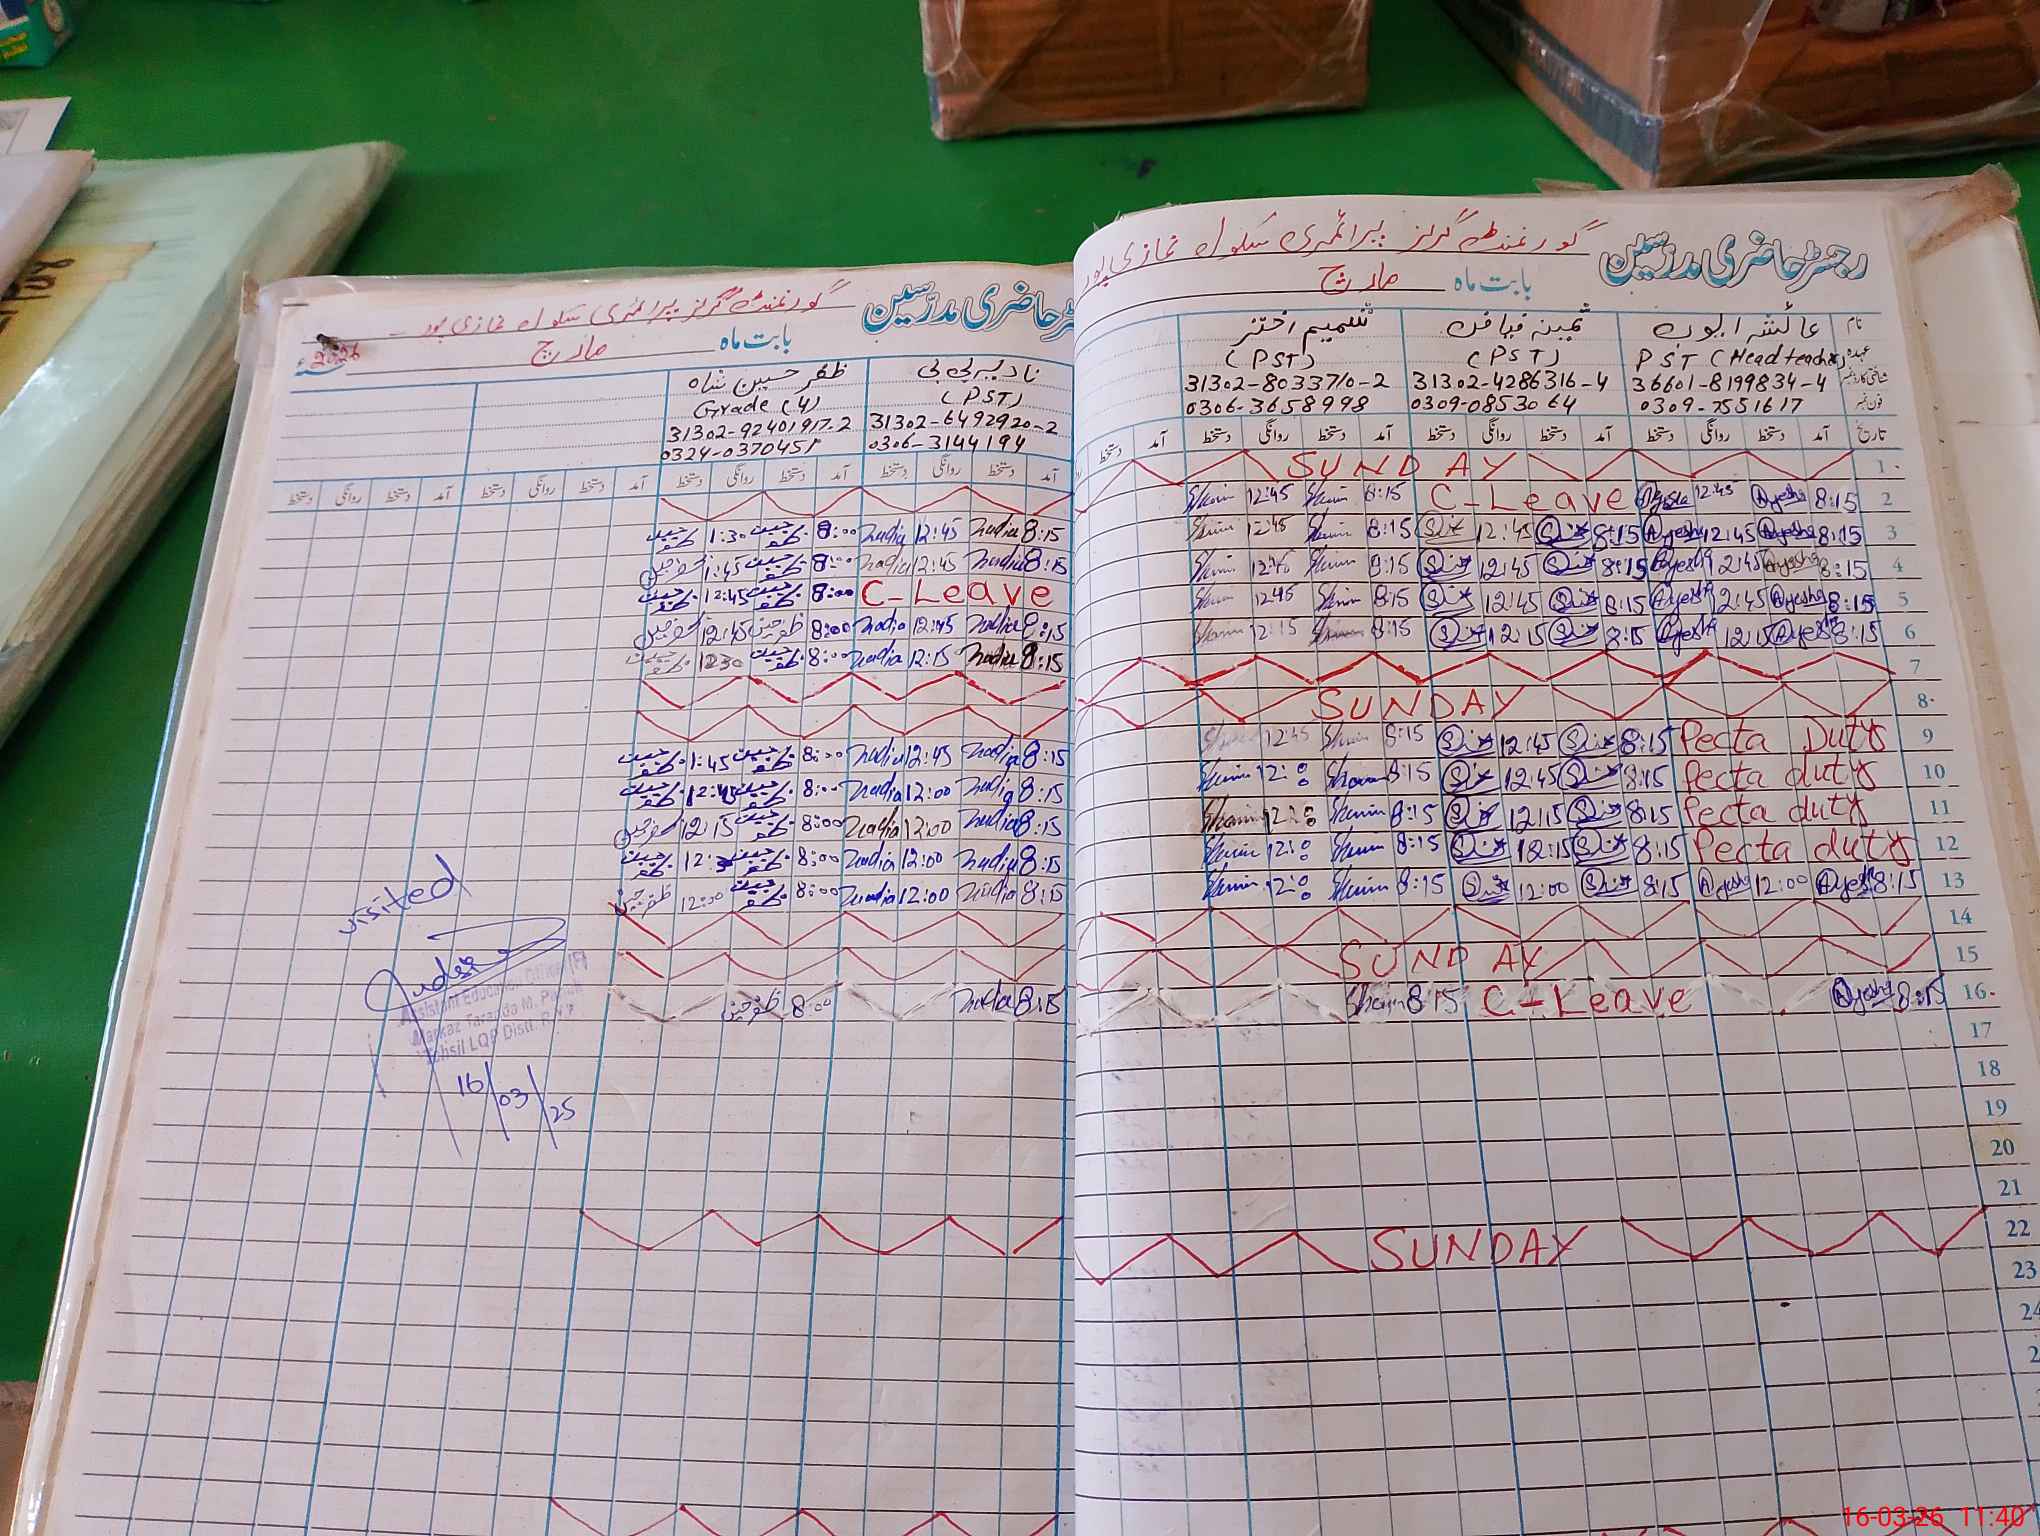 رجسٹر حاضری مدرسین گورنمنٹ گرلز پرائمری سکول نمازی پور
بابت ماہ مارچ
نام عائشہ ایوب ثمینہ فیاض شمیم اختر
عہدہ PST (Head teacher) (PST) (PST)
شناختی کارڈ نمبر 36601-8199834-4 31302-4286316-4 31302-8033710-2
فون نمبر 0309-7551617 0309-0853064 0306-3658998
تاریخ آمد دستخط روانگی دستخط آمد دستخط روانگی دستخط آمد دستخط روانگی دستخط آمد دستخط
1 SUNDAY
2 8:15 Ayesha 12:45 Ayesha C-Leave 8:15 Shamim 12:45 Shamim
3 8:15 Ayesha 12:45 Ayesha 8:15 12:45 8:15 Shamim 12:45 Shamim
4 8:15 Ayesha 12:45 Ayesha 8:15 12:45 8:15 Shamim 12:45 Shamim
5 8:15 Ayesha 12:45 Ayesha 8:15 12:45 8:15 Shamim 12:45 Shamim
6 8:15 Ayesha 12:15 Ayesha 8:15 12:15 8:15 Shamim 12:15 Shamim
7
8 SUNDAY
9 Pecta Duty 8:15 12:45 8:15 Shamim 12:45 Shamim
10 Pecta duty 8:15 12:45 8:15 Shamim Shamim
11 Pecta duty 8:15 12:15 8:15 Shamim Shamim
12 Pecta duty 8:15 12:15 8:15 Shamim Shamim
13 8:15 Ayesha 12:00 Ayesha 8:15 12:00 8:15 Shamim Shamim
14
15 SUNDAY
16 8:15 Ayesha C-Leave 8:15 Shamim
17
18
19
20
21
22 SUNDAY
23
24
رجسٹر حاضری مدرسین گورنمنٹ گرلز پرائمری سکول نمازی پور
بابت ماہ مارچ 2026ء
نادیہ بی بی ظفر حسین شاہ
(PST) Grade (4)
31302-6492920-2 31302-92401917-2
0306-3144194 0324-0370451
آمد دستخط روانگی دستخط آمد دستخط روانگی دستخط آمد دستخط روانگی دستخط آمد دستخط روانگی دستخط
8:15 Nadia 12:45 Nadia 8:00 ظفر حسین 1:30 ظفر حسین
8:15 Nadia 12:45 Nadia 8:00 ظفر حسین 1:45 ظفر حسین
C-Leave 8:00 ظفر حسین 12:45 ظفر حسین
8:15 Nadia 12:45 Nadia 8:00 ظفر حسین 12:45 ظفر حسین
8:15 Nadia 12:15 Nadia 8:00 ظفر حسین 12:30 ظفر حسین
8:15 Nadia 12:45 Nadia 8:00 ظفر حسین 1:45 ظفر حسین
8:15 Nadia 12:00 Nadia 8:00 ظفر حسین 12:45 ظفر حسین
8:15 Nadia 12:00 Nadia 8:00 ظفر حسین 12:15 ظفر حسین
8:15 Nadia 12:00 Nadia 8:00 ظفر حسین ظفر حسین
8:15 Nadia 12:00 Nadia 8:00 ظفر حسین 12:00 ظفر حسین
8:15 Nadia 8:00 ظفر حسین
visited
Assistant Education Officer (F)
Markaz Taranda M. Panah
Tehsil LQP Distt. R.Y.K
16/03/25
16-03-26 11:40